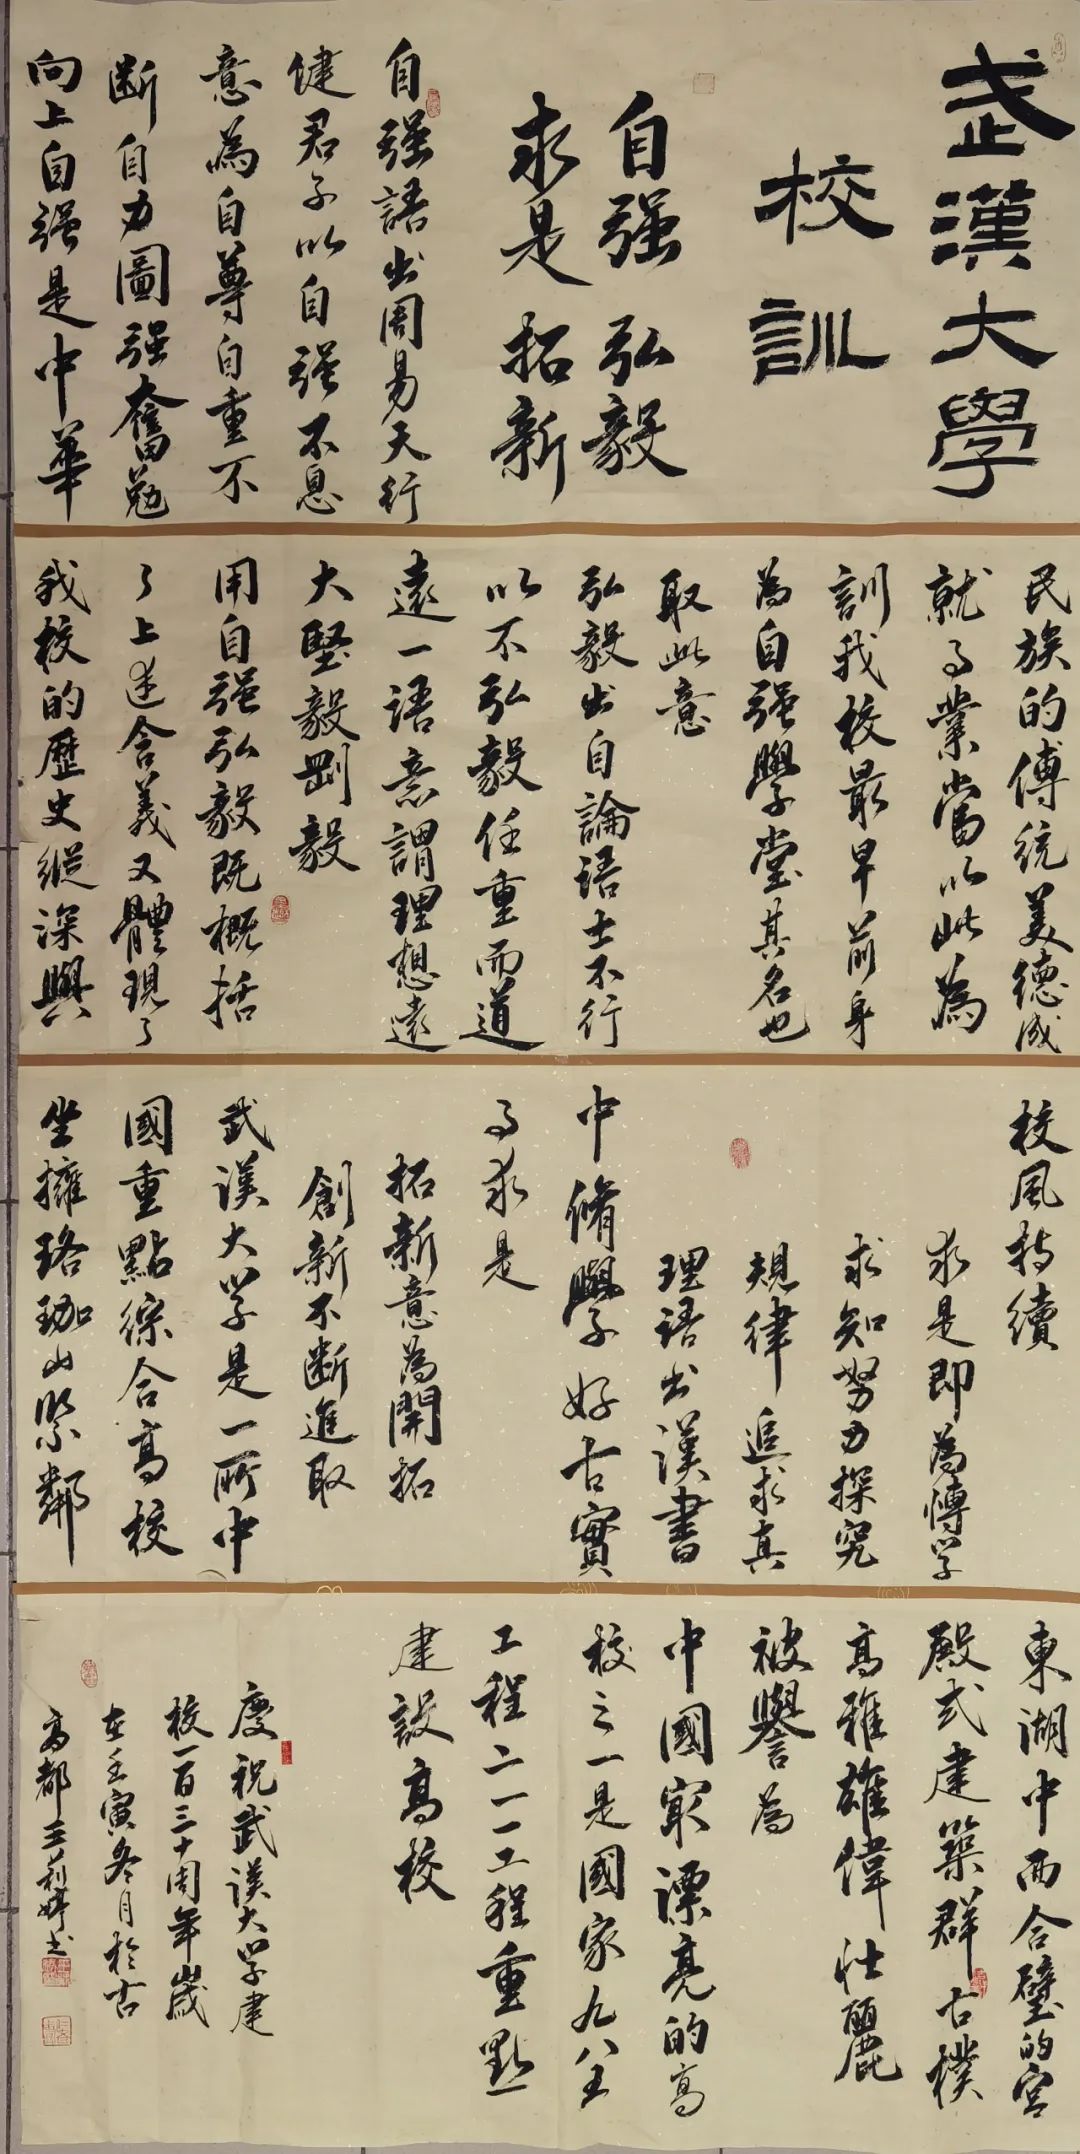 武漢大學
校訓
自强 弘毅
求是 拓新
自强語出周易天行
健君子以自强不息
意為自尊自重不
断自力圖强奮勉
向上自强是中華
民族的傅統美德成
就事業當以此為
訓我校最早前身
為自强學堂其名也
取此意
弘毅出自論語士不行
以不弘毅任重而道
遠一語意謂理想遠
大堅毅剛毅
用自强弘毅既概括
了上述含義又體現了
我校的歷史縱深與
校風持續
求是即為博学
求知努力探究
規律 追求真
理語出漢書
中脩學好古實
事求是
拓新意為開拓
創新不断進取
武漢大学是一所中
國重點綜合高校
坐擁珞珈山緊鄰
東湖中西合璧的宮
殿式建築群古樸
高雅雄偉壮麗
被譽為
中國最漂亮的高
校之一是國家九八五
工程二一一工程重點
建設高校
慶祝武漢大学建
校一百三十周年歲
在壬寅冬月於古
高都王莉婷书